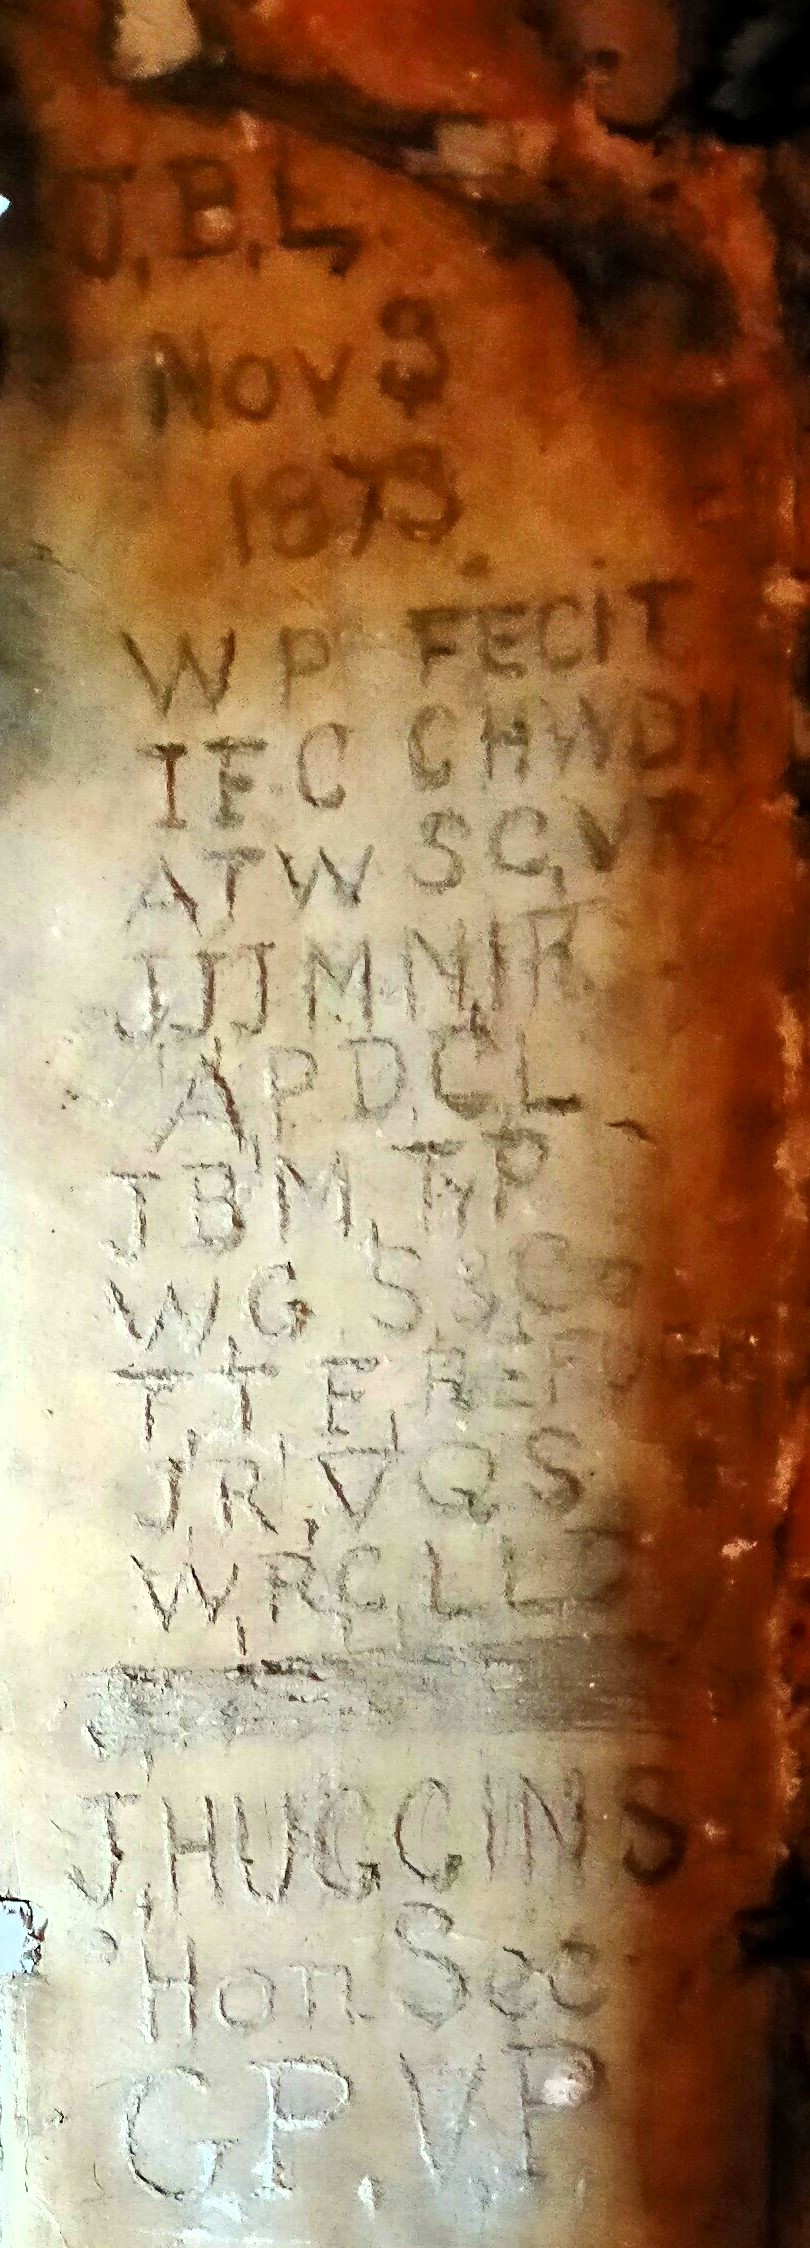 J,B,L,
Nov 3
1873.
W P FECIT
IFC CHWDN
ATW SC,VR
JJJ M NIR
A P D,C,L
J B M, TyP
W G S &Co
T,T,E, REFUGE
J R, V Q S
W,R,C, LLD
J,HUGGINS
Hon Sec
GP, VP